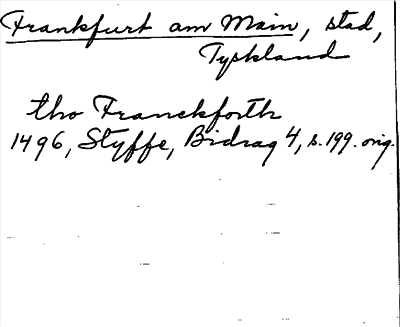 Frankfurt am Main, stad,
Tyskland
tho Franckforth
1496, Styffe, Bidrag 4, s. 199. orig.